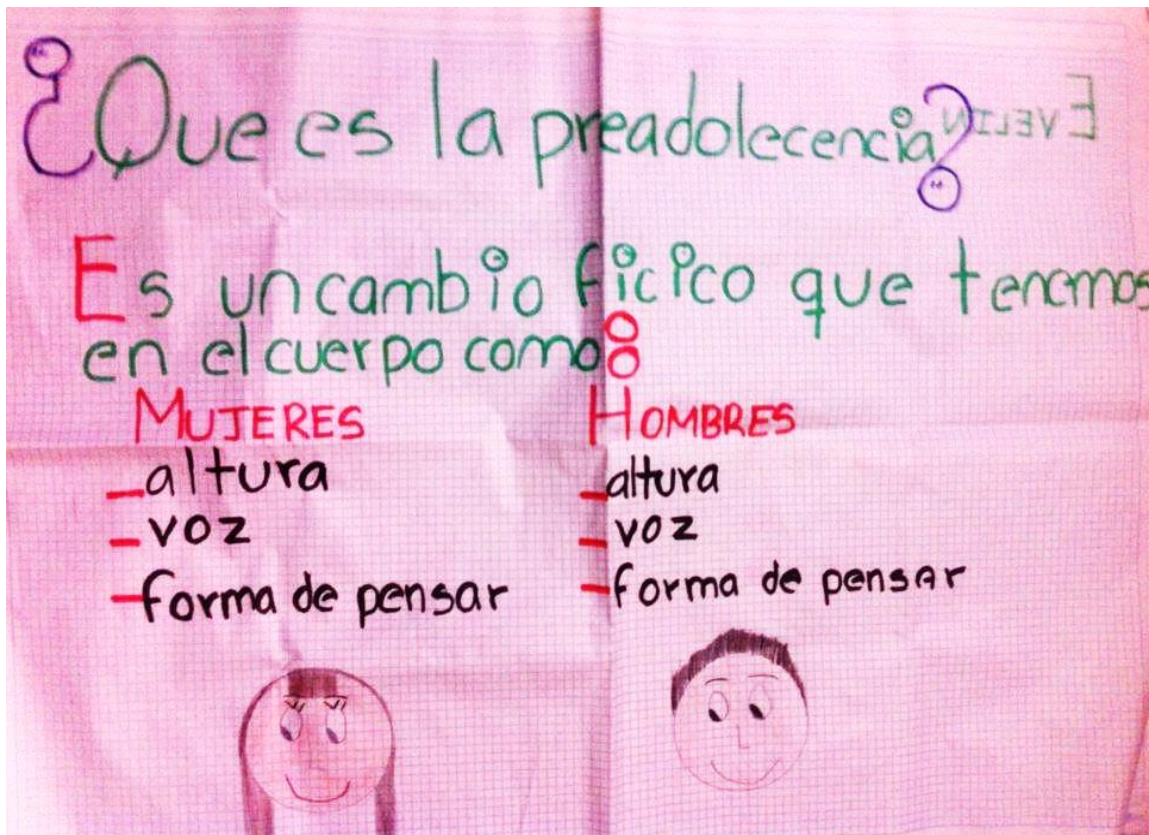 ¿Que es la preadolecencia?
EVELIN
Es un cambio ficico que tenemos
en el cuerpo como:
MUJERES
-altura
-voz
-forma de pensar
HOMBRES
-altura
-voz
-forma de pensar